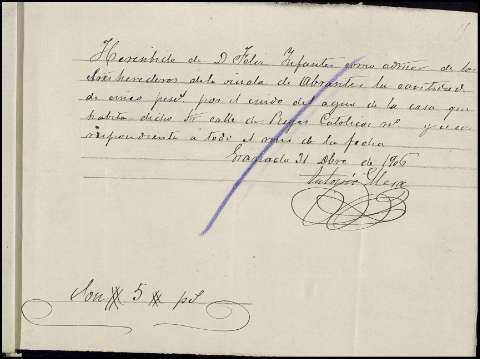 He recibido de D Felix Infantes como admor de los
Sres herederos de la viuda de Abrantes la cantidad
de cinco peset. por el cuido del agua de la casa que
habita dicho Sr calle de Reyes Catolicos nº y es co
rrespondiente a todo el mes de la fecha
Granada 31 Dbre de 1906
Antonio
Son # 5 # pts